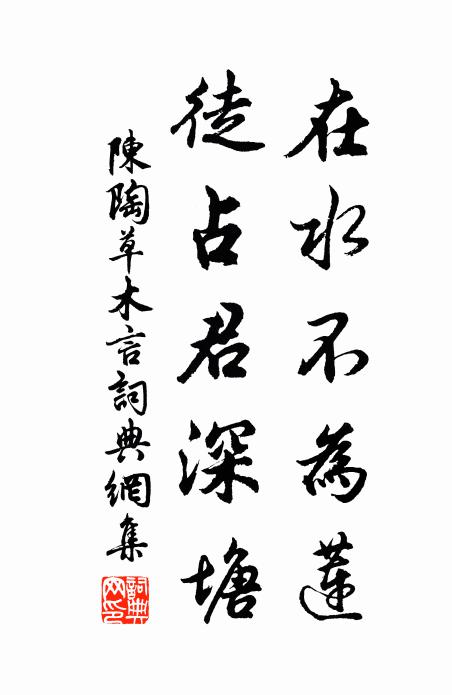 在水不為蓮
徒占君深塘
陳陶草木言詞典網集
詞典网印